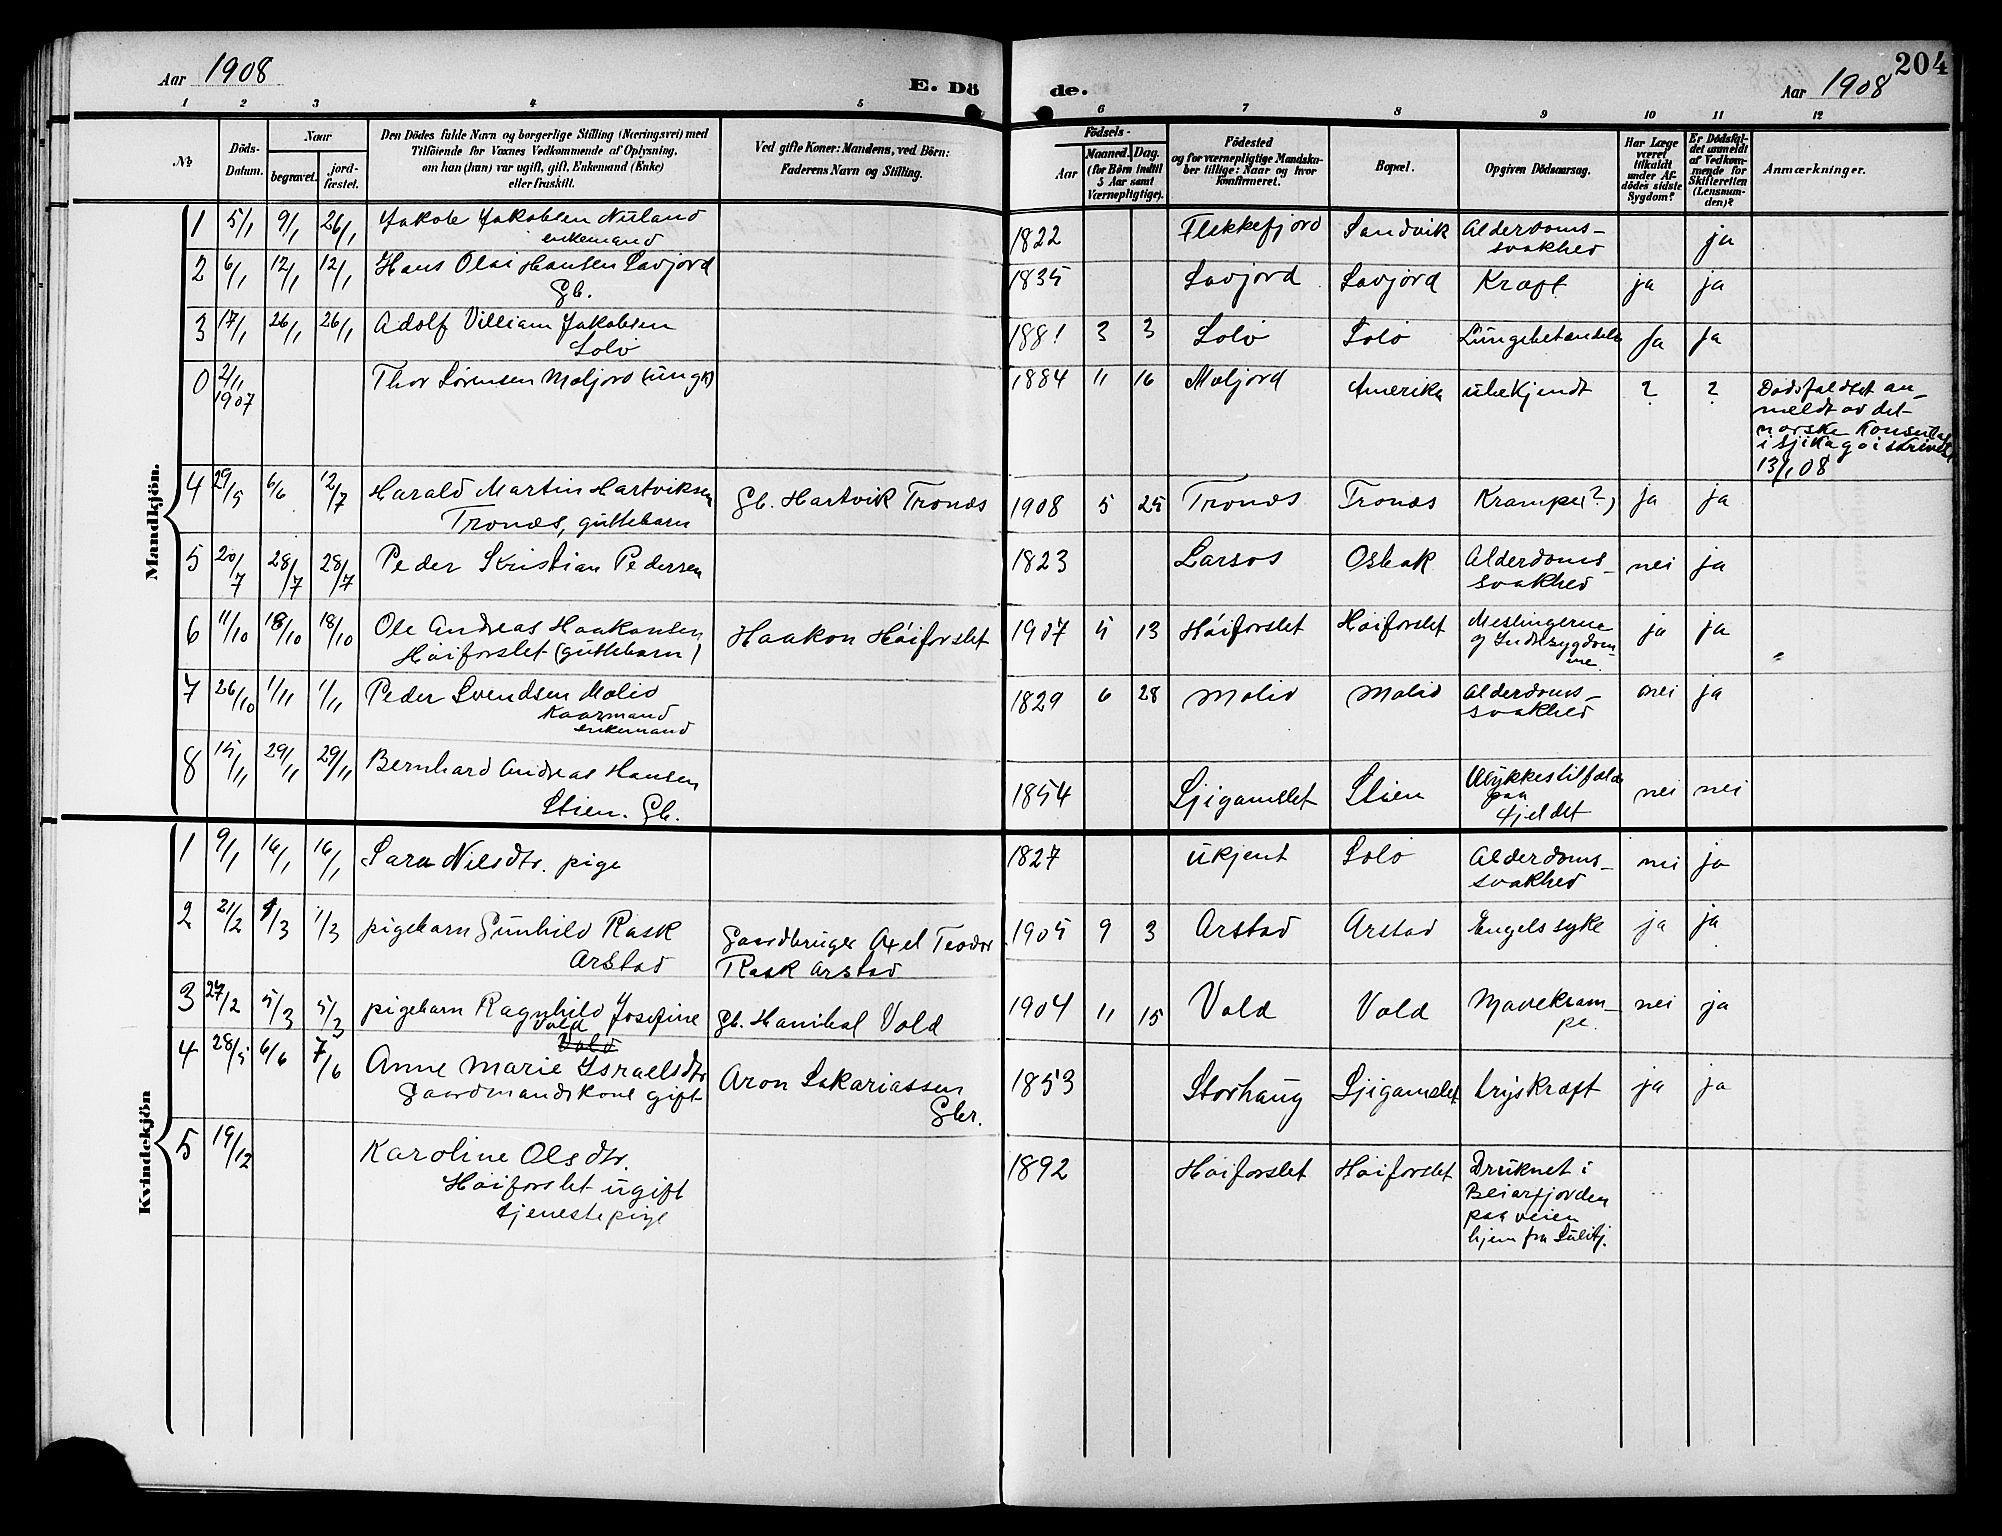 Aar 1908
E. Dö
de.
204
Aar 1908
1 2 3 4 5
6 7 8 9 10 11 12
No.
Döds-
Datum.
Naar
begravet.
jord-
fæstet.
Den Dödes fulde Navn og borgerlige Stilling (Næringsvei) med
Tilföiende for Voxnes Vedkommende af Oplysning,
om han (hun) var ugift, gift, Enkemand (Enke)
eller fraskilt.
Ved gifte Koner: Mandens, ved Börn:
Faderens Navn og Stilling.
Födsels-
Aar
Maaned. Dag.
(for Börn indtil
5 Aar samt
Værnepligtige).
Födested
og for værnepligtige Mandska-
ber tillige: Naar og hvor
konfirmeret.
Bopæl.
Opgiven Dödsaarsag.
Har Læge
været
tilkaldt
under Af-
dödes sidste
Sygdom?
Er Dödsfal-
det anmeldt
af Vedkom-
mende for
Skifteretten
(Lensman-
den)?
Anmærkninger.
Mandkjön.
1 5/1 9/1 26/1 Jakob Jakobsen Nuland
enkemand
1822 Flekkefjord Sandvik Alderdoms-
svakhed
ja
2 6/1 12/1 12/1 Hans Olai Hansen Savjord
Gb.
1835 Savjord Savjord Kræft ja ja
3 17/1 26/1 26/1 Adolf Villiam Jakobsen
Solø
1881 3 3 Solø Solø Lungebetændelse ja ja
0 2/11
1907
Thor Sørensen Moljord (ungk)
1884 11 16 Moljord Amerika ubekjendt ? ? Dødsfaldet an-
meldt av det
norske Konsulat
i Sjikago i skrivelse
13/1 08
4 29/5 6/6 12/7 Harald Martin Hartviksen
Tronæs, guttebarn
Gb. Hartvik Tronæs
1908 5 25 Tronæs Tronæs Krampe(?) ja ja
5 20/7 28/7 28/7 Peder Kristian Pedersen
1823 Larsos Osbak Alderdoms-
svakhed
nei ja
6 11/10 18/10 18/10 Ole Andreas Haakonsen
Høiforslet (guttebarn)
Haakon Høiforslet
1907 5 13 Høiforslet Høiforslet Meslingerne
og Indresygdom-
me.
ja ja
7 26/10 1/11 1/11 Peder Svendsen Molid
Kaarmand
enkemand
1829 6 28 Molid Molid Alderdoms-
svakhed
nei ja
8 15/11 29/11 29/11 Bernhard Andreas Hansen
Stien. Gb.
1854 Ljigamslet Stien Ulykkestilfælde
paa
fjeldet
nei nei
Kvindekjön
1 9/1 16/1 16/1 Sara Nilsdtr. pige
1827 ukjent Solø Alderdoms-
svakhed
nei ja
2 21/2 1/3 1/3 pigebarn Gunhild Rask
Arstad
Gaardbruger Axel Teodor
Rask Arstad
1905 9 3 Arstad Arstad Engelsk syke ja ja
3 27/2 5/3 5/3 pigebarn Ragnhild Josefine
Vold
Gb. Hanibal Vold
1904 11 15 Vold Vold Mavekram-
pe.
nei ja
4 28/5 6/6 7/6 Anne Marie Israelsdtr
Gaardmandskone gift
Aron Sakariassen
Gbr.
1853 Storhaug Ljigamslet brystkræft ja ja
5 19/12 Karoline Olsdtr.
Høiforslet ugift
tjenestepige
1892 Høiforslet Høiforslet Druknet i
Beiarfjorden
paa veien
hjem fra Sulitj.